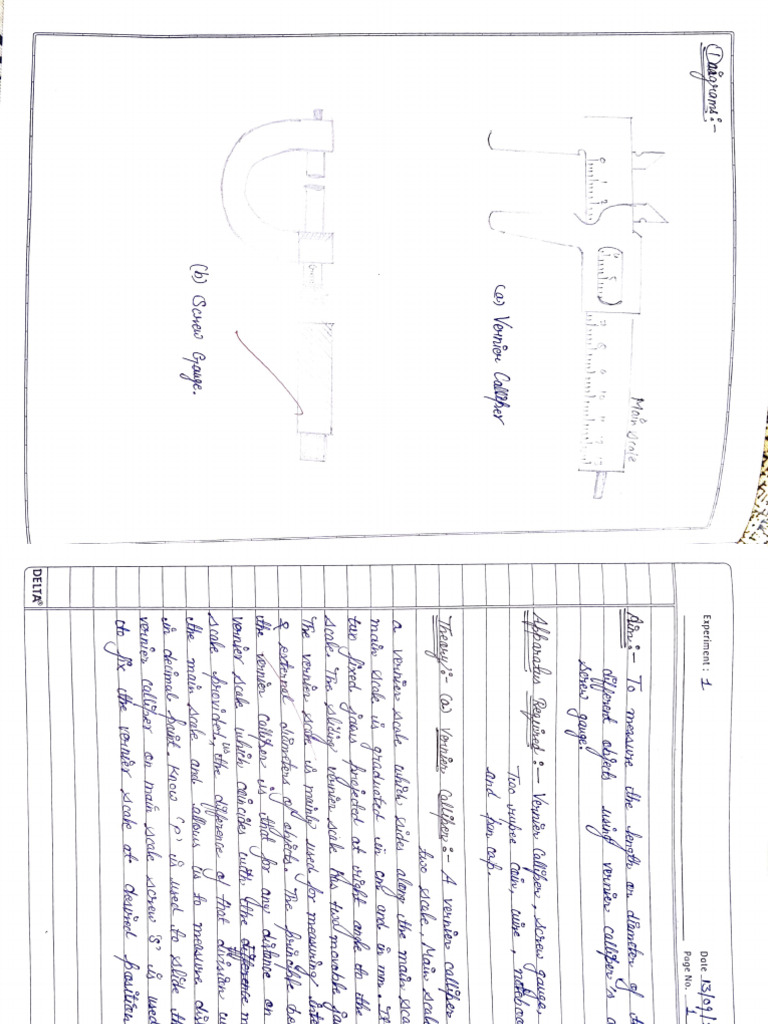 ① Daigrams:-
Main scale
(a) Vernier Calliper
(b) Screw Gauge.
Experiment : 1
Date 13/09/
Page No. 1
Aim:- To measure the length or diameter of
different objects using vernier calliper's
screw gauge.
Apparatus Required :- Vernier Calliper, screw gauge,
Two rupee coin, wire,
and pen cap.
Theory:- (a) Vernier Calliper:- A vernier calliper
two scale. Main scal
a vernier scale which slides along the main sca
main scale is graduated in cm and in mm.
two fixed jaws projected at right angle to the
scale. The sliding vernier scale has two movable
The vernier scale is mainly used for measuring
& external diameters of objects. The principle
the vernier calliper is that for any distance on
vernier scale which coincides with the
scale provided, is the difference of that division
the main scale and allows us to measure
in decimal point. Know 'P' is used to slide
vernier calliper on main scale screw 'S' is used
to fix the vernier scale at desired position
DELTA®